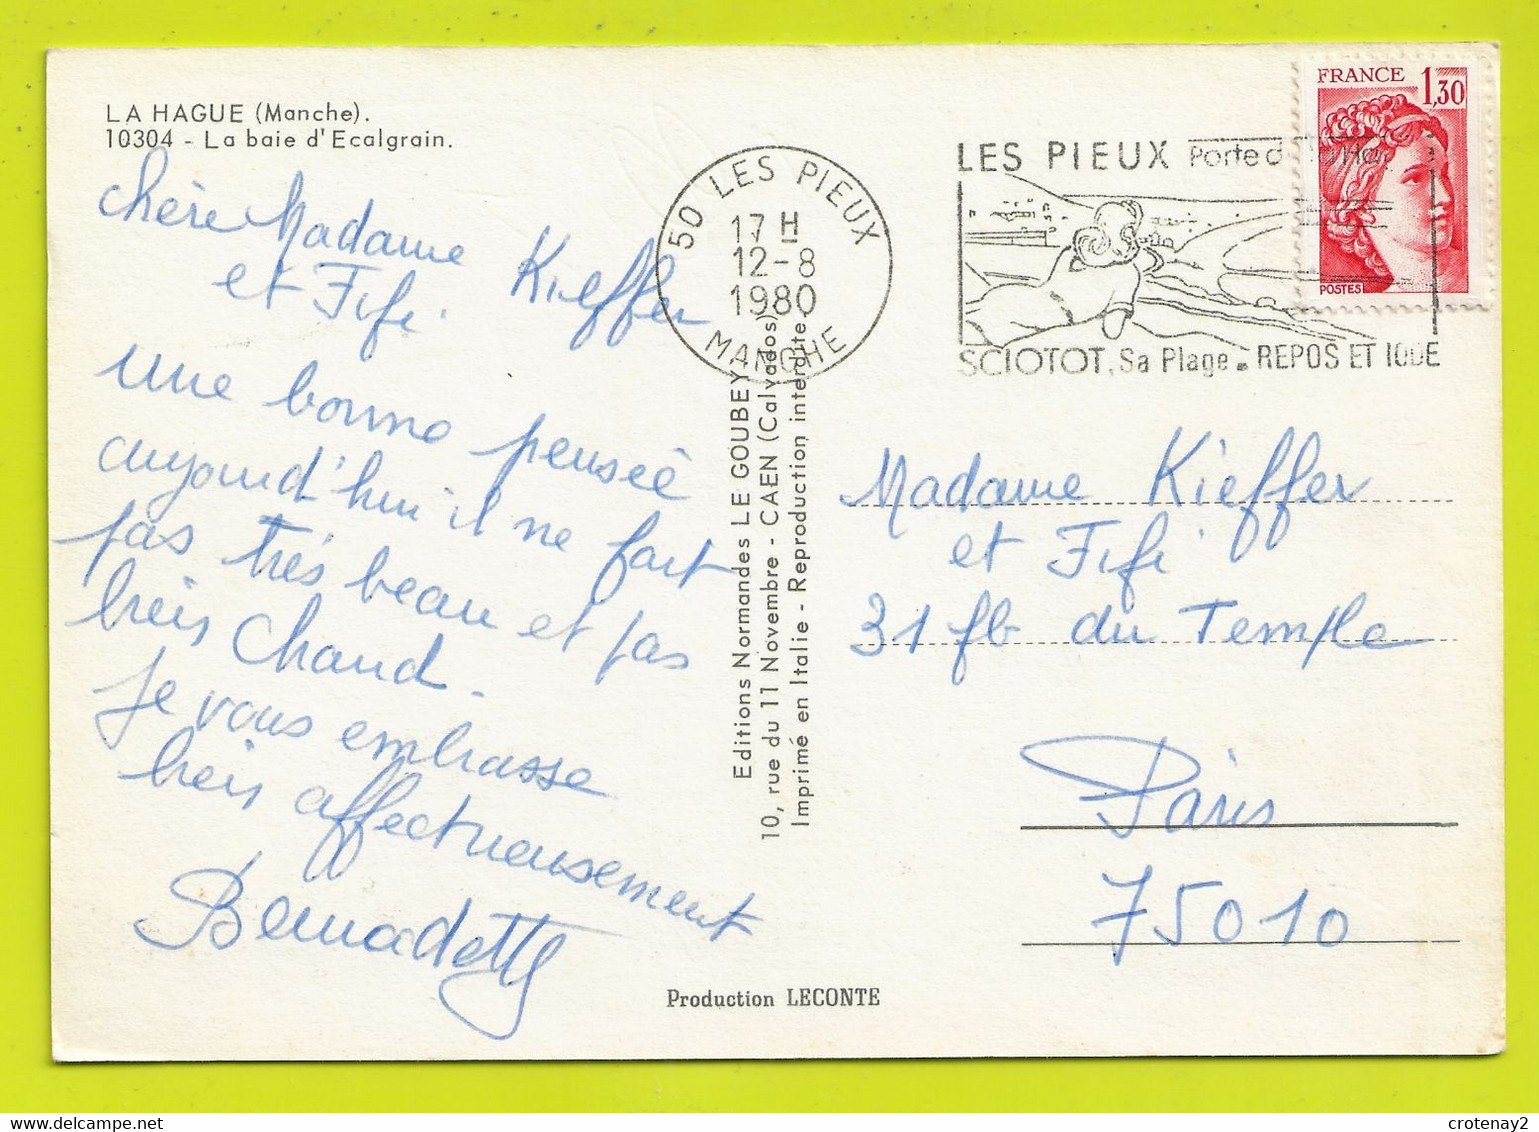 LA HAGUE (Manche).
10304 - La baie d'Ecalgrain.
chère Madame Kieffer
et Fifi
une bonne pensée
aujourd'hui il ne fait
pas très beau et pas
breis Chaud.
Je vous embrasse
breis affectueusement
Bernadette
50 LES PIEUX
17 H
12-8
1980
MANCHE
Editions Normandes LE GOUBEY
10, rue du 11 Novembre - CAEN (Calvados)
Imprimé en Italie - Reproduction interdite.
Production LECONTE
LES PIEUX Porte d
SCIOTOT, Sa Plage. REPOS ET IODE
FRANCE 1,30
POSTES
Madame Kieffer
et Fifi
31 fb du Temple
Paris
75010
crotenay2